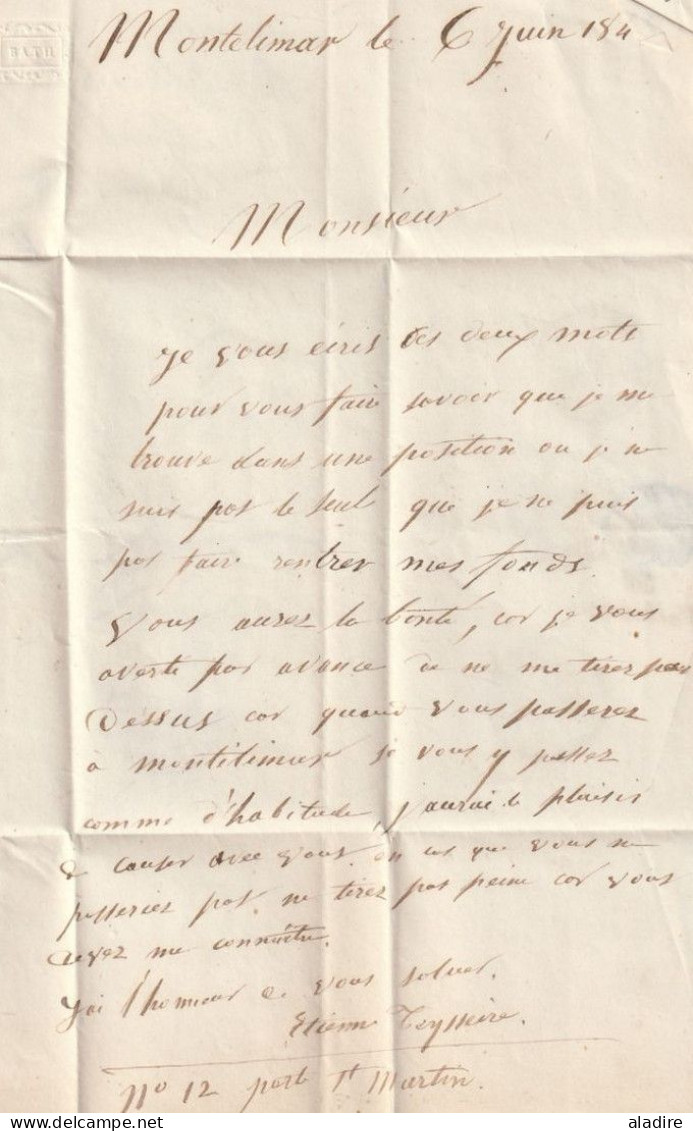 BATH
Montelimar le 6 Juin 184
Monsieur
Je vous écris ces deux mots
pour vous faire savoir que je me
trouve dans une position ou je ne
suis pas le seul que je ne puis
pas faire rentrer mes fonds.
Vous aurez la bonté, car je vous
averti par avance de ne me tirer pas
Dessus car quand vous passerez
à montelimar si vous y passez
comme d'habitude, j'aurai le plaisir
de causer avec vous, en cas que vous ne
passeriez pas ne tirez pas peine car vous
devez me connaître.
J'ai l'honneur de vous saluer.
Etienne Teysseire.
No 12 port St Martin.